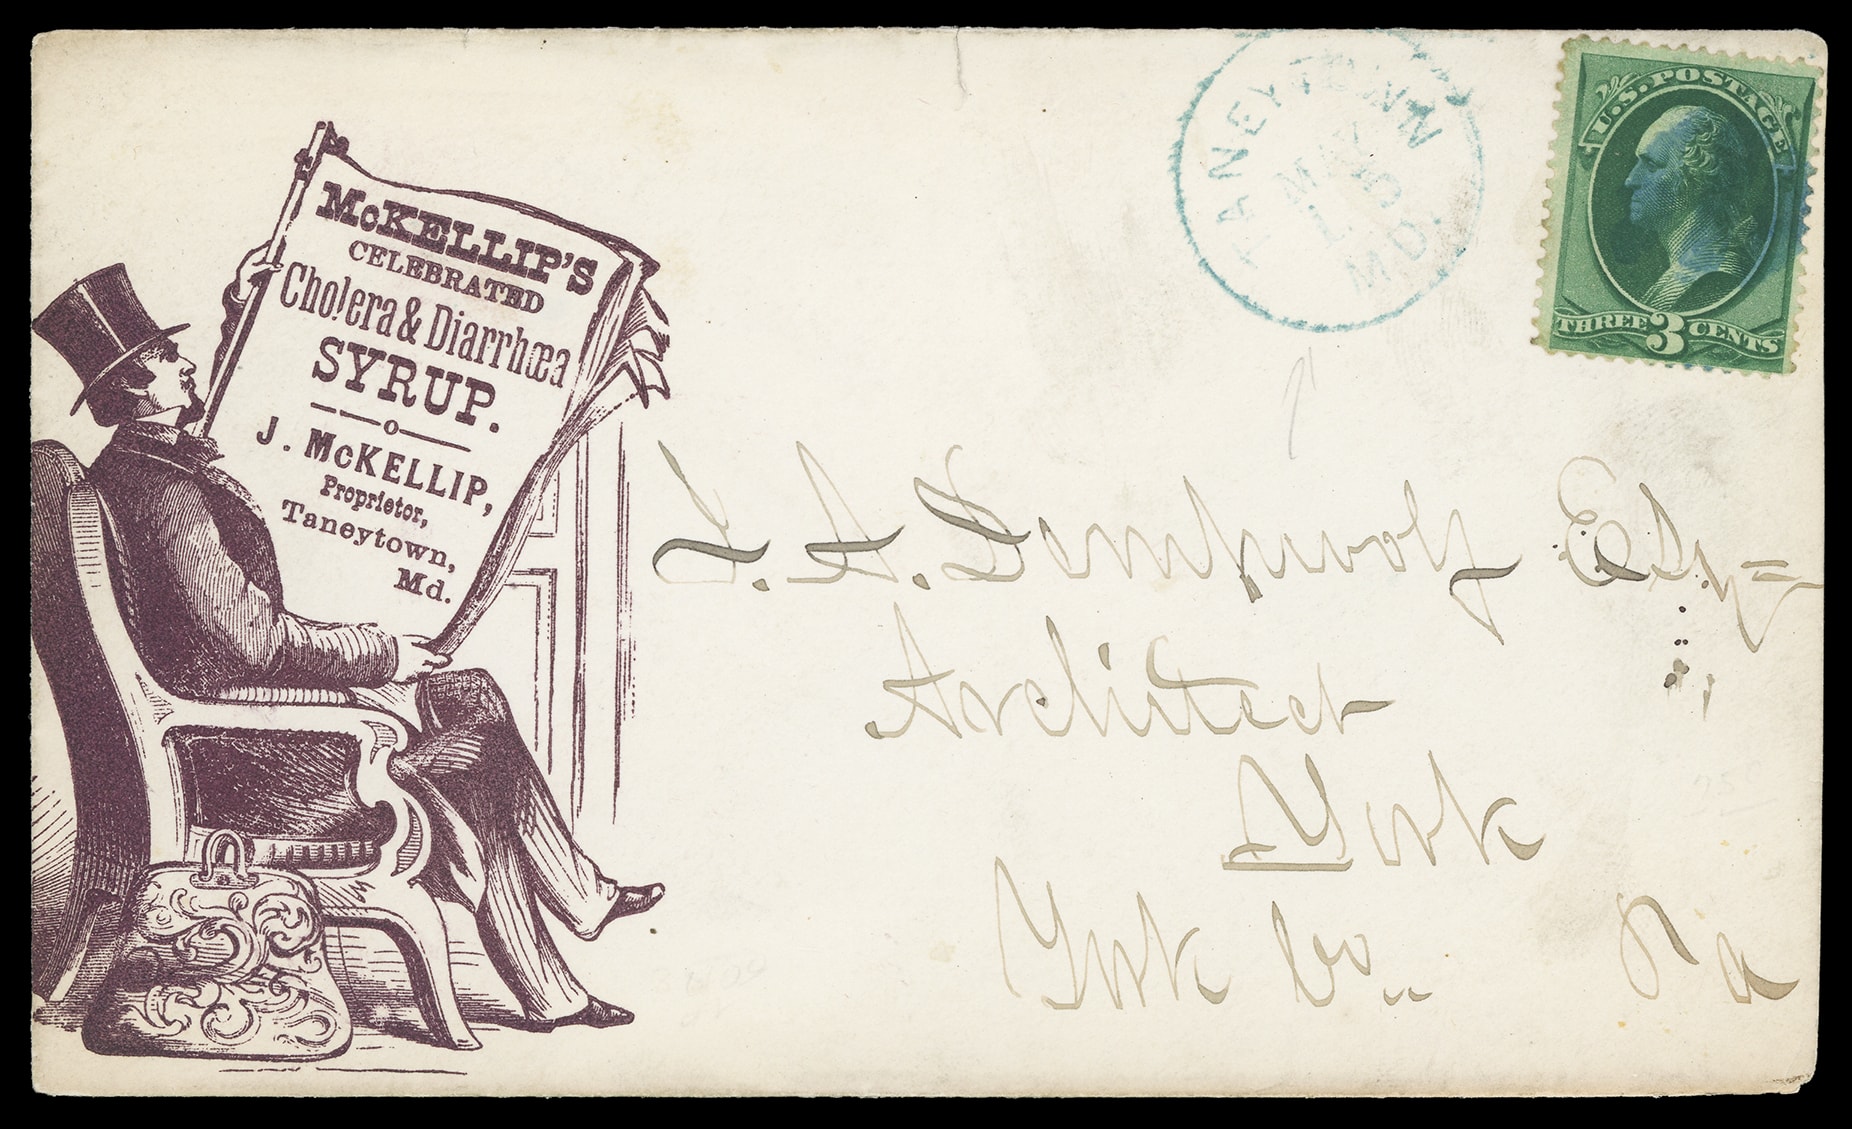 McKELLIP'S
CELEBRATED
Cholera & Diarrhœa
SYRUP.
J. McKELLIP,
Proprietor,
Taneytown,
Md.
TANEYTOWN
MAY
MD.
U.S. POSTAGE
THREE 3 CENTS
A. Dempwolf Esq
Architect
York
York Co. Pa